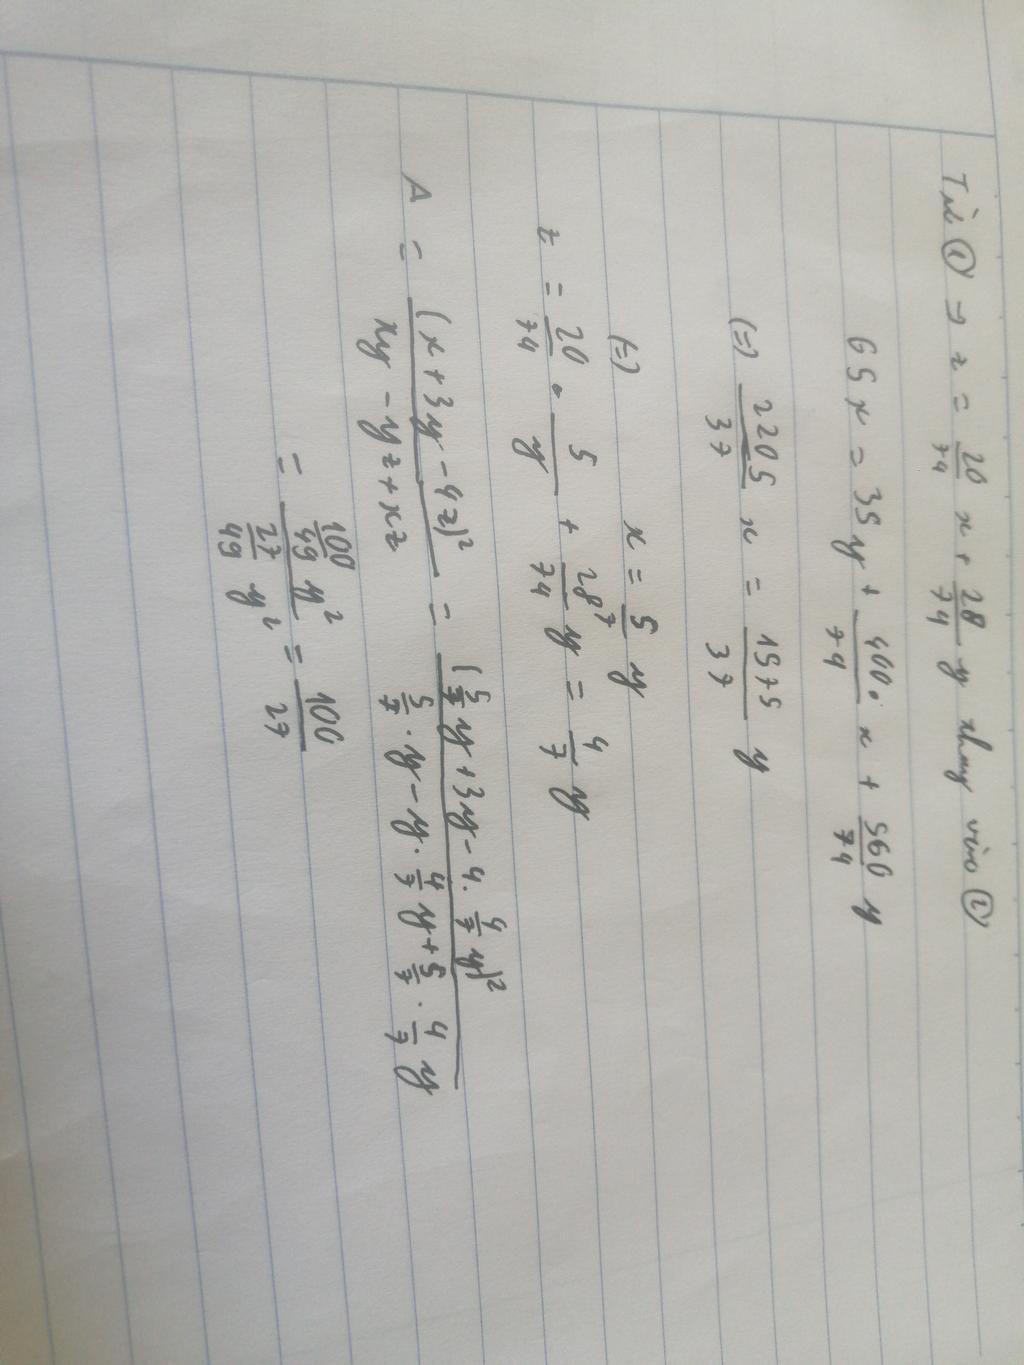 Từ ① → z = 20/74 x + 28/74 y thay vào ②
65x = 35y + 400/74 x + 560/74 y
(=) 2205/37 x = 1575/37 y
(=) x = 5/7 y
z = 20/74 . 5/y + 28/74 y = 4/7 y
A = (x+3y-4z)²/(xy-yz+xz) = (5/7 y+3y-4.4/7 y)²/(5/7.y-y.4/7 y+5/7.4/7 y)
= (100/49 y²)/(27/49 y²) = 100/27